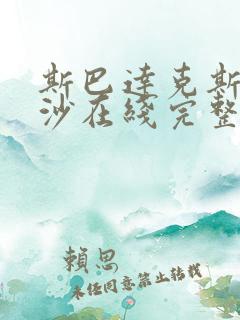 斯巴達克斯
沙在綫完整
賴思
未经同意禁止转载